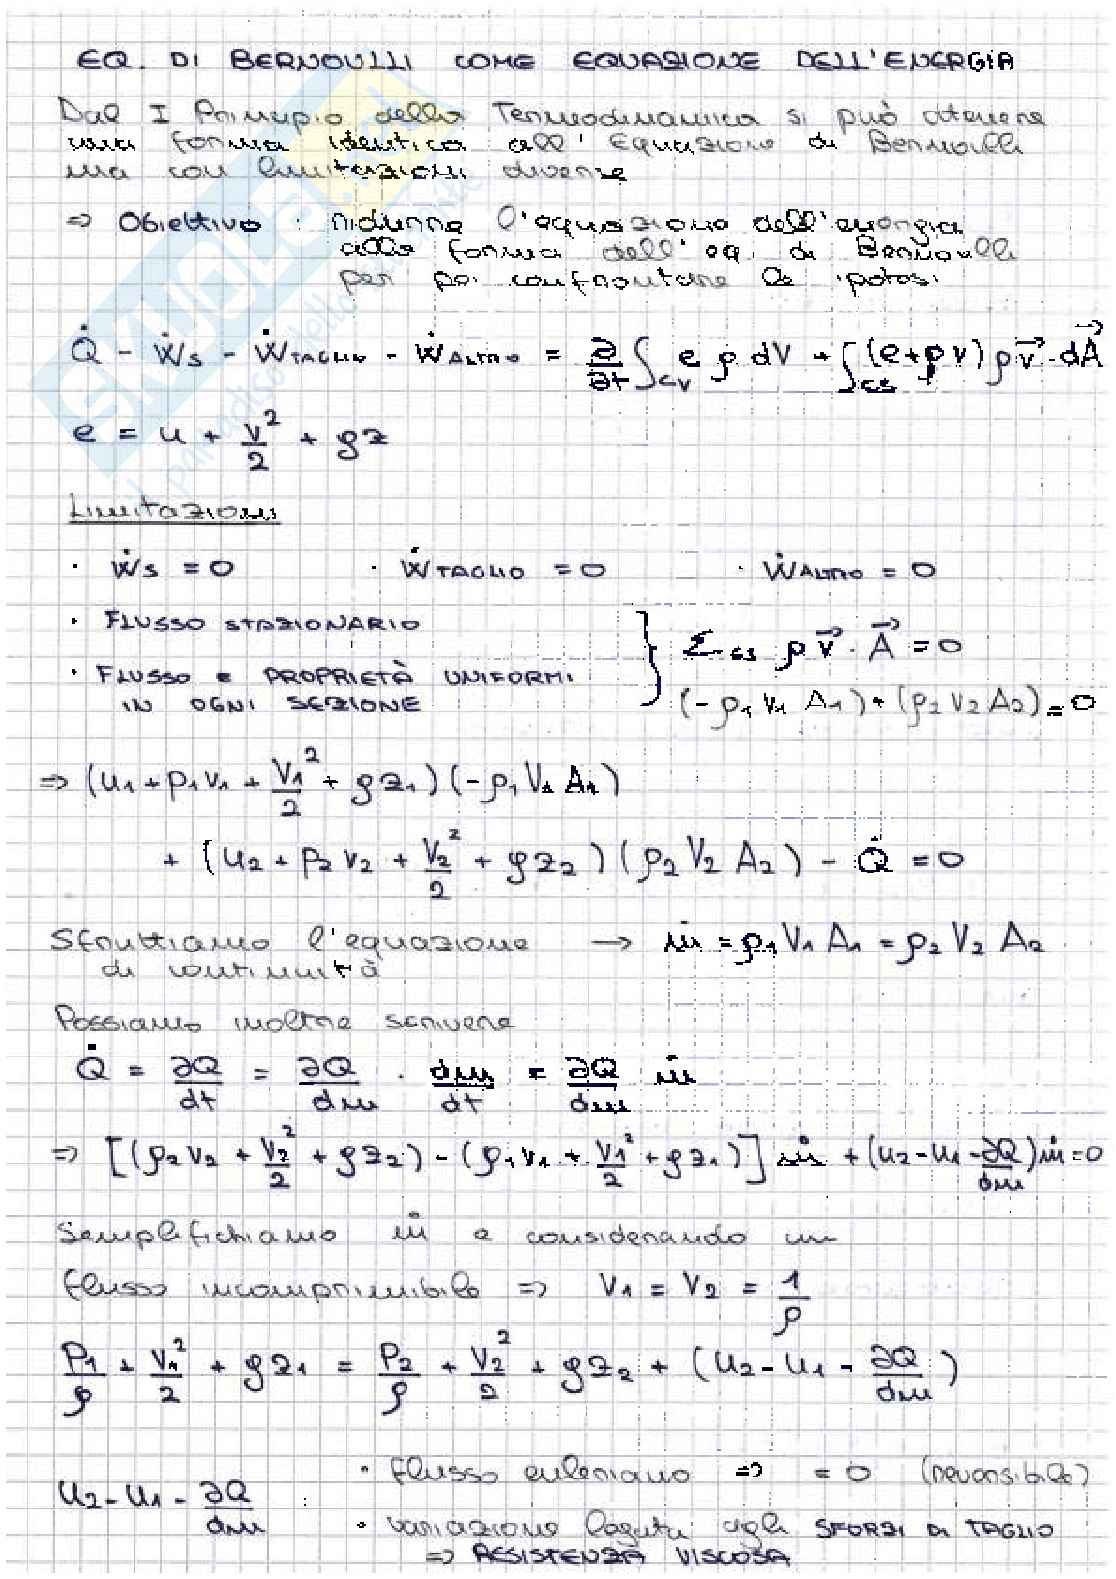 EQ. DI BERNOULLI COME EQUAZIONE DELL'ENERGIA
Dal I Principio della Termodinamica si può ottenere
una forma identica all'Equazione di Bernoulli
ma con limitazioni diverse
⇒ Obiettivo : ridurre l'equazione dell'energia
alla forma dell'eq. di Bernoulli
per poi confrontare le ipotesi
Q̇ - Ẇs - ẆTAGLIO - ẆALTRO = ∂/∂t ∫CV e ρ dV + ∫CS (e+pv) ρ v⃗ · dA⃗
e = u + V²/2 + gz
Limitazioni
· Ẇs = 0 · ẆTAGLIO = 0 · ẆALTRO = 0
· FLUSSO STAZIONARIO
· FLUSSO e PROPRIETÀ UNIFORMI
IN OGNI SEZIONE
} Σcs ρ v⃗ · A⃗ = 0
(-ρ1 V1 A1) + (ρ2 V2 A2) = 0
⇒ (u1 + p1v1 + V1²/2 + gz1)(-ρ1 V1 A1)
+ (u2 + p2v2 + V2²/2 + gz2)(ρ2 V2 A2) - Q̇ = 0
Sfruttiamo l'equazione → ṁ = ρ1 V1 A1 = ρ2 V2 A2
di continuità
Possiamo inoltre scrivere
Q̇ = ∂Q/dt = ∂Q/dm · dm/dt = ∂Q/dm ṁ
⇒ [(p2v2 + V2²/2 + gz2) - (p1v1 + V1²/2 + gz1)] ṁ + (u2 - u1 - ∂Q/dm) ṁ = 0
Semplifichiamo ṁ e considerando un
flusso incomprimibile ⇒ v1 = v2 = 1/ρ
P1/ρ + V1²/2 + gz1 = P2/ρ + V2²/2 + gz2 + (u2 - u1 - ∂Q/dm)
u2 - u1 - ∂Q/dm :
· flusso euleriano ⇒ = 0 (reversibile)
· variazione legata agli SFORZI DI TAGLIO
⇒ RESISTENZA VISCOSA
SKUOLA.net